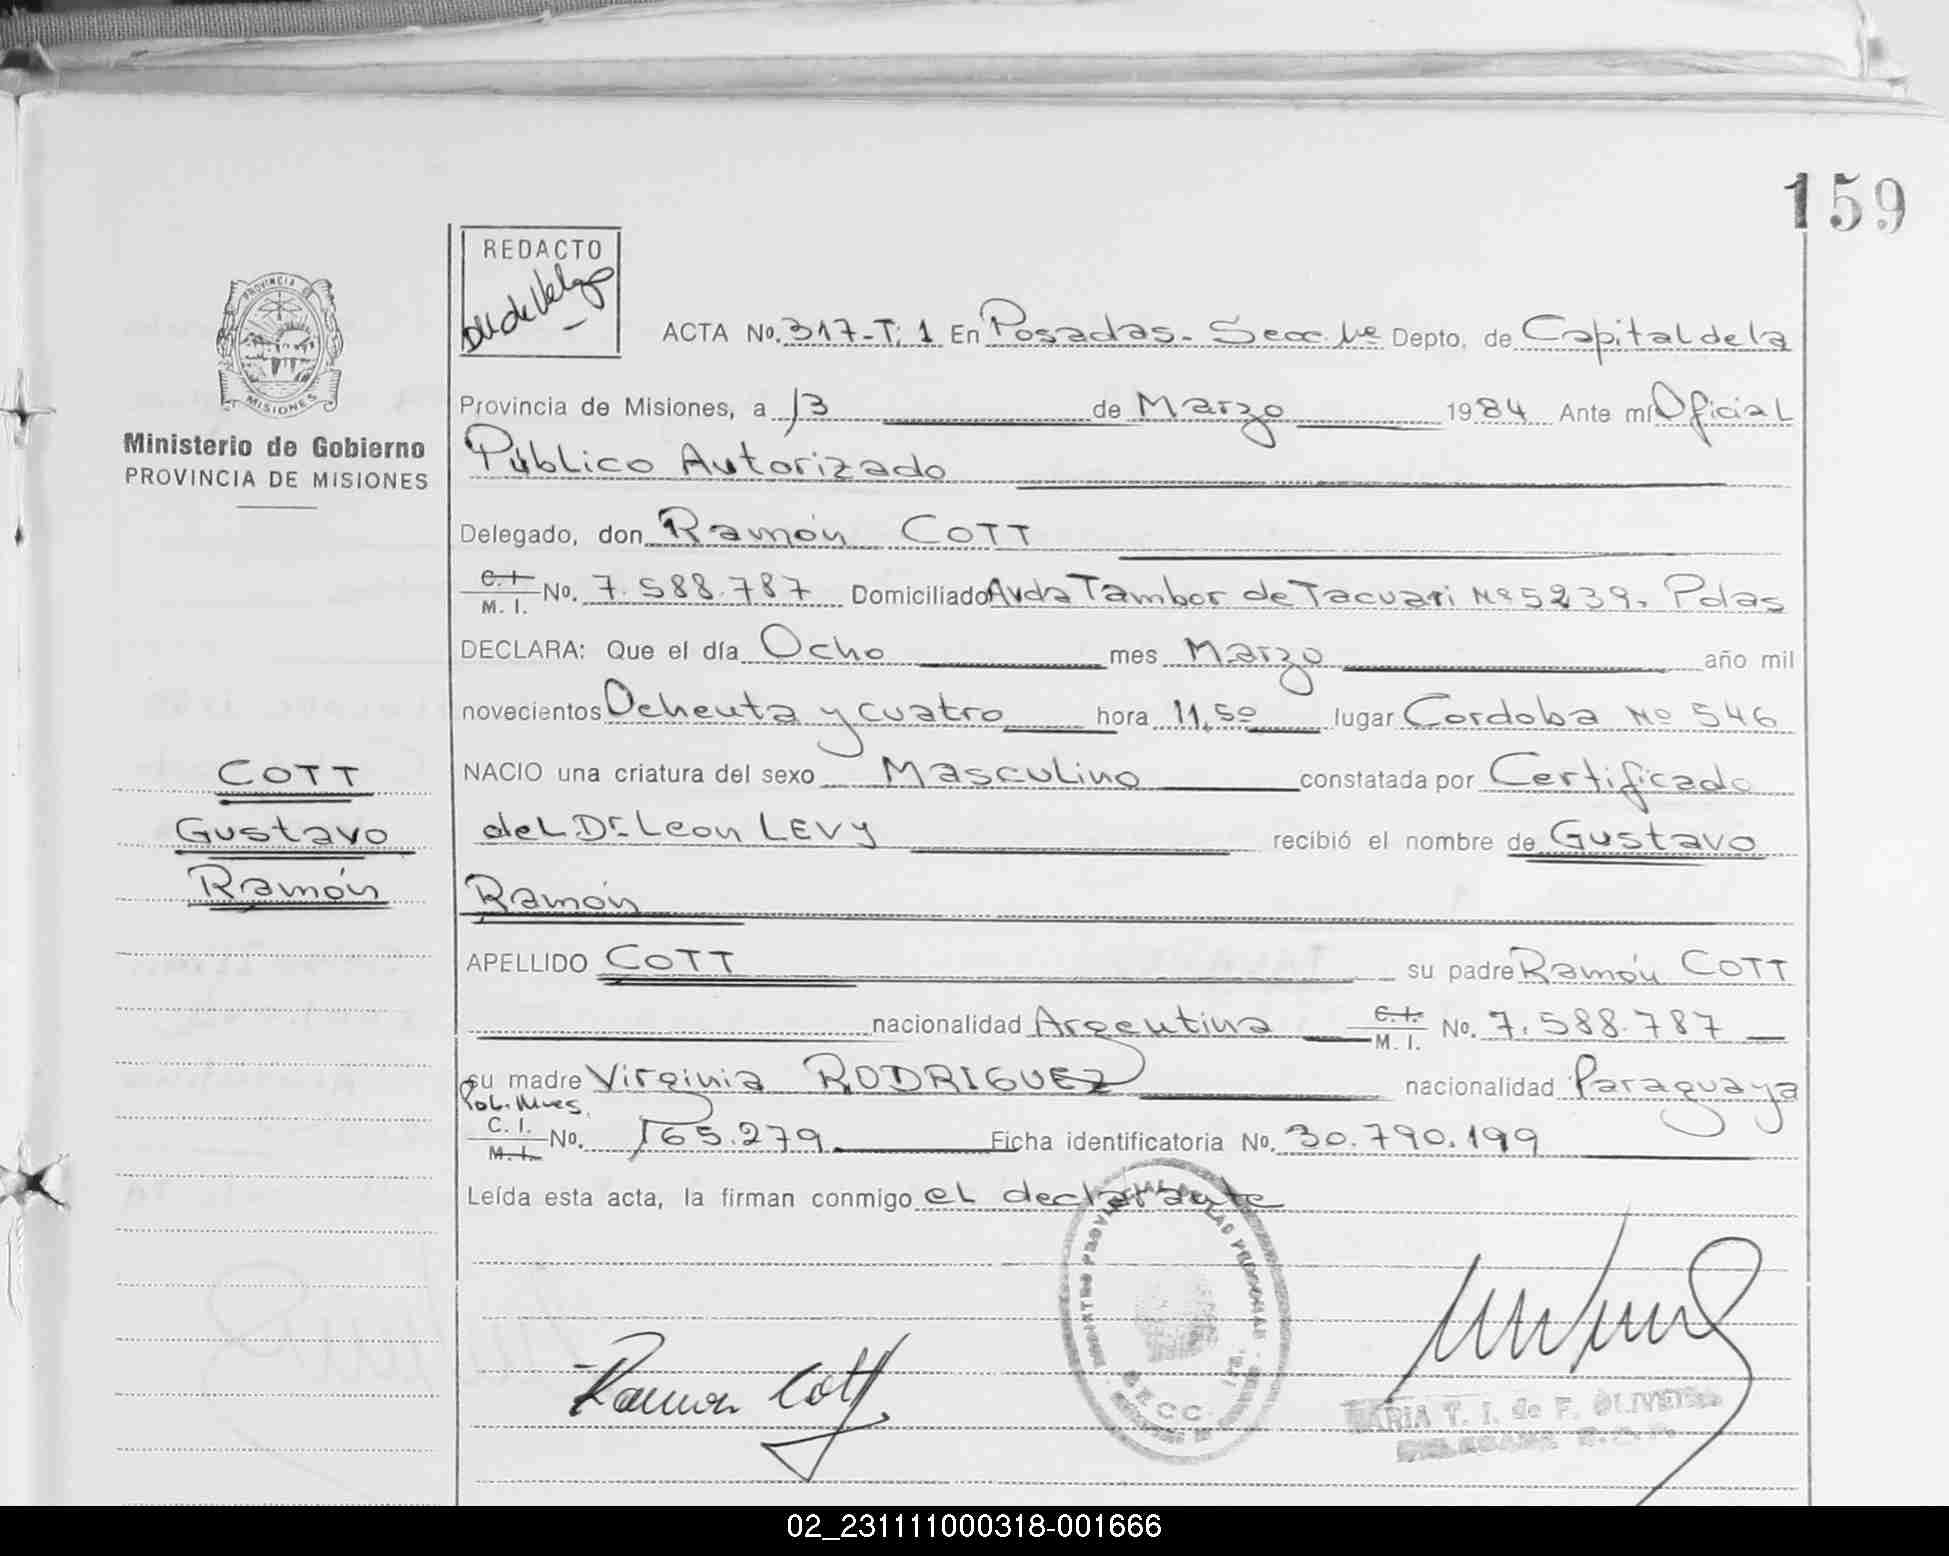 159
REDACTO
PROVINCIA DE
MISIONES
Ministerio de Gobierno
PROVINCIA DE MISIONES
ACTA No. 317-T. 1 En Posadas - Secc. 1ª Depto, de Capital de la
Provincia de Misiones, a 13 de Marzo 1984 Ante mí Oficial
Público Autorizado
Delegado, don Ramón COTT
C. I. M. I. No. 7.588.787 Domiciliado Avda Tambor de Tacuari Nº 5239, Pdas
DECLARA: Que el día Ocho mes Marzo año mil
novecientos Ochenta y cuatro hora 11,50 lugar Cordoba Nº 546
NACIO una criatura del sexo Masculino constatada por Certificado
del Dr. Leon LEVY recibió el nombre de Gustavo
Ramón
COTT
Gustavo
Ramón
APELLIDO COTT su padre Ramón COTT
nacionalidad Argentina C. I. M. I. No. 7.588.787
su madre Virginia RODRIGUEZ nacionalidad Paraguaya
Pol. Mnes.
C. I. M. I. No. 165.279 Ficha identificatoria No. 30.790.199
Leída esta acta, la firman conmigo el declarante
Ramon Cott
MARIA T. I. de F. OLIVEIRA
02_231111000318-001666